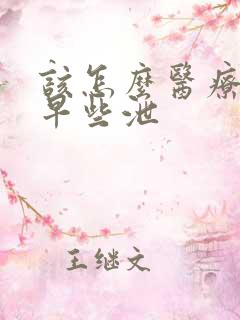 该怎麼醫療
早些泄
王继文